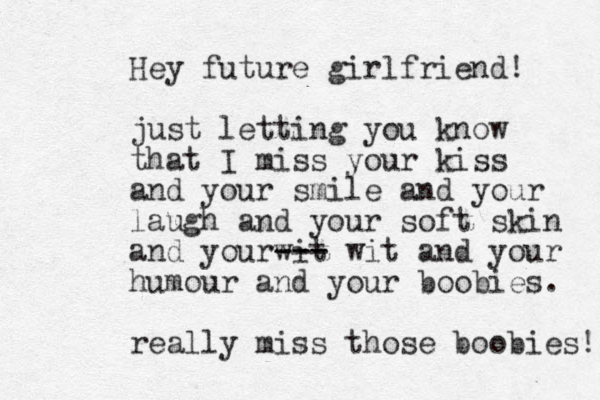 Hey future girlfriend!
just letting you know
that I miss your kiss
and your smile and your
laugh and your soft skin
and yourwit wit and your
humour and your boobies.
really miss those boobies!